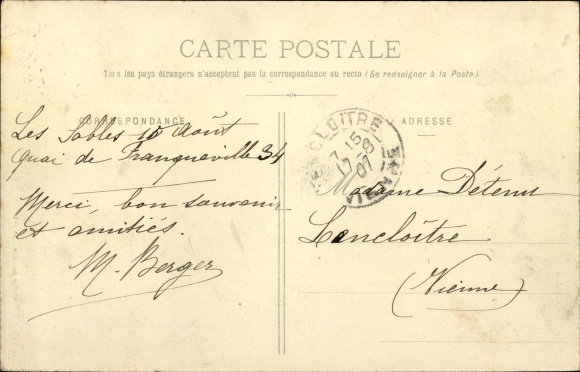 CARTE POSTALE
Tous les pays étrangers n'acceptent pas la correspondance au recto (Se renseigner à la Poste)
CORRESPONDANCE
Les Sables 16 Août
Quai de Franqueville 34
Merci, bon souvenir
et amitiés.
M. Berger
ADRESSE
LENCLOITRE
15
17 -8
07
VIENNE
Madame Détenu
Lencloître
(Vienne)